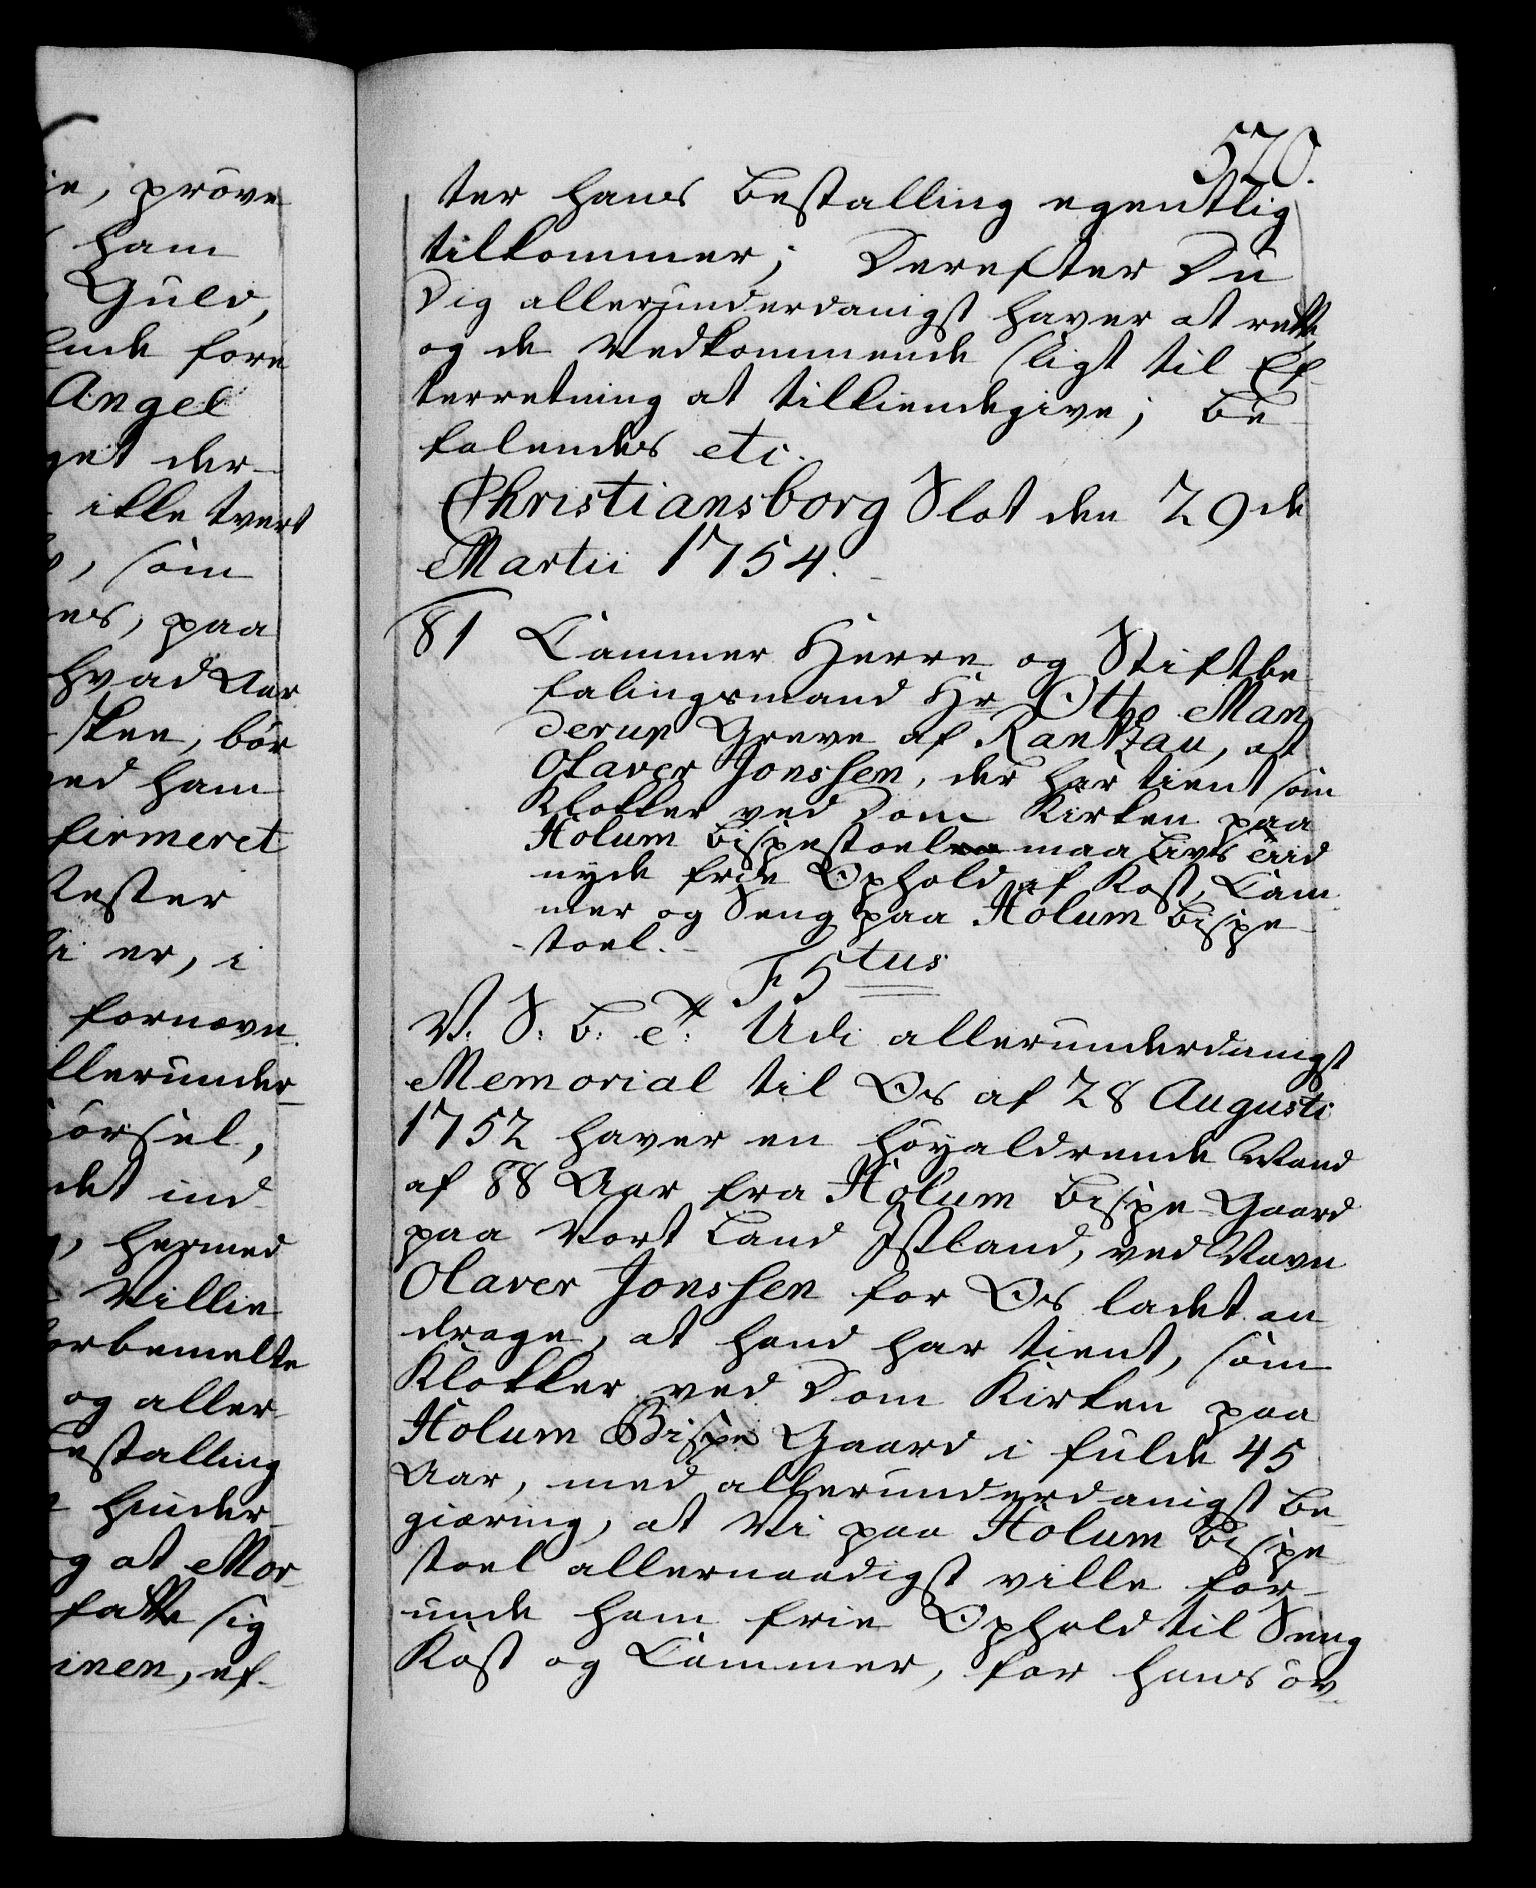 ie, prøve
ham
Guld,
ende fore
Angel
get der-
ikke tvert
, som
es, paa
hvad Aar
skee, bør
ed ham
firmeret
Rester
i er, i
fornævn
llerunder-
ørsel,
det ind-
, hermed
Villie
orbemelte
og aller-
estalling
hinder-
g at Mor-
fatte sig
inen, ef-
570.
ter hans Bestalling egentlig
tilkommer; Derefter Du
Dig allerunderdanigst haver at rette,
og de Vedkommende sligt til Ef-
terretning at tilkiendegive; Be-
falendes etc.
Christiansborg Slot den 29de
Martii 1754.
81 Cammer Herre og Stiftbe
falingsmand Hr Otto Man
derup Greve af Rantzau, at
Olaver Jonssen, der har tient som
Klokker ved Dom Kirken paa
Holum Bispestoel maa Livs Tiid
nyde frie Ophold af Kost, Cam-
mer og Seng paa Holum Bispe-
-stoel.-
F 5tus
V. S: B: et: Udi allerunderdanigst
Memorial til Os af 28 Augusti
1752 haver en høyaldrende Mand
af 88 Aar fra Holum Bispe-Gaard
paa Vort Land Iisland, ved Navn
Olaver Jonssen for Os ladet an
drage, at hand har tient, som
Klokker ved Dom Kirken paa
Holum Bispe Gaard i fulde 45
Aar, med allerunderdanigst Be-
giæring, at Vi paa Holum Bispe
stoel allernaadigst ville for-
unde ham frie Ophold til Seng
Kost og Cammer, for hans øv-